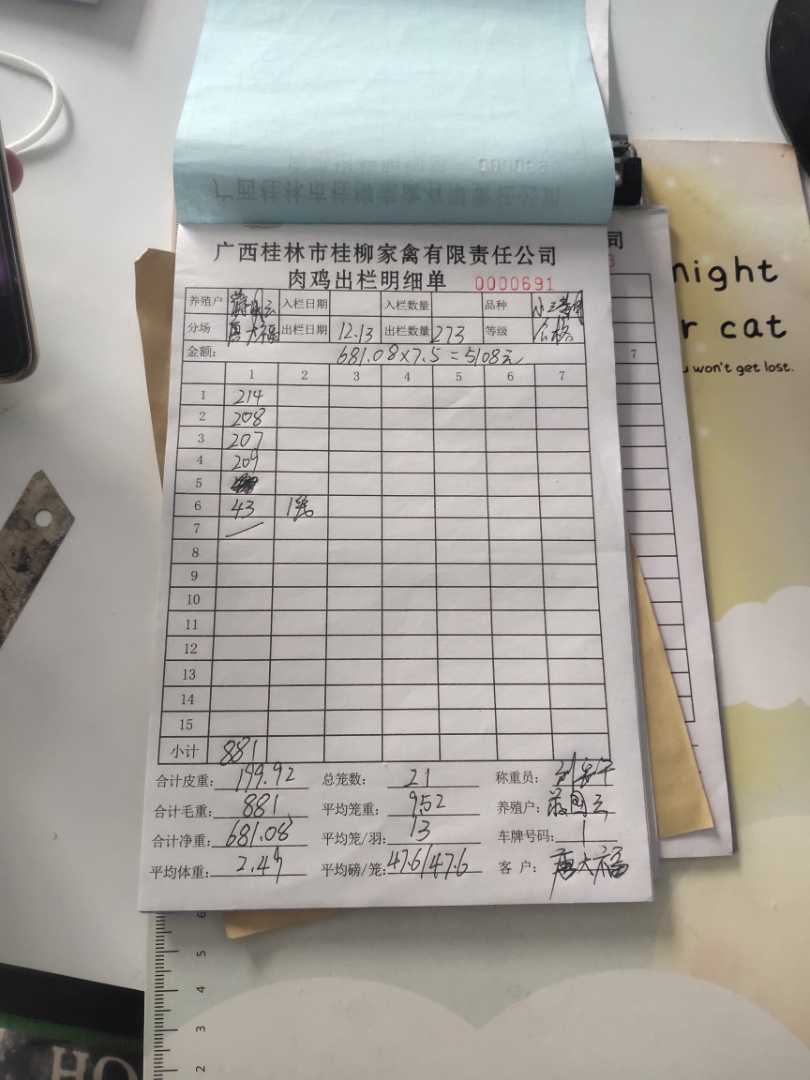 广西桂林市桂柳家禽有限责任公司
肉鸡出栏明细单 0000691
养殖户 入栏日期 入栏数量 品种
分场 唐大福 出栏日期 12.13 出栏数量 273 等级 合格
金额: 681.08×7.5=5108元
1 2 3 4 5 6 7
1 214
2 208
3 207
4 209
5
6 43 1
7
8
9
10
11
12
13
14
15
小计 881
合计皮重: 199.92 总笼数: 21 称重员:
合计毛重: 881 平均笼重: 9.52 养殖户:
合计净重: 681.08 平均笼/羽: 13 车牌号码: 1
平均体重: 2.49 平均磅/笼: 47.6/47.6 客 户: 唐大福
司
7
night
r cat
won't get lost.
6
5
4
3
2
HO